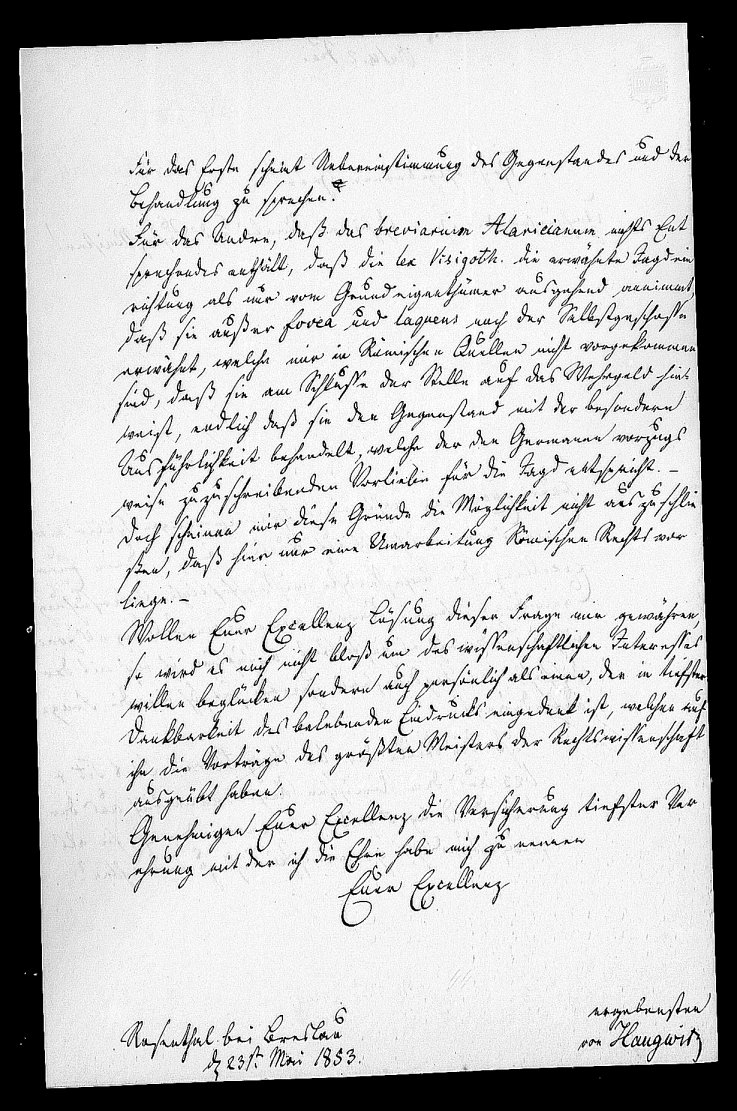 Für das Erste scheint Uebereinstimmung des Gegenstandes und der
Behandlung zu sprechen.
Für das Andere, daß das breviarium Alaricianum nichts Ent
sprechendes enthält, daß die lex Visigoth. die erwähnte Jagdein
richtung als nur vom Grundeigenthümer ausgehend annimmt,
daß sie außer fovea und laqueus noch der Selbstgeschosse
erwähnt, welche mir in Römischen Quellen nicht vorgekommen
sind, daß sie am Schlusse der Stelle auf das Wehrgeld hin-
weist, endlich daß sie den Gegenstand mit der besondern
Ausführlichkeit behandelt, welche der den Germanen vorzugs
weise zuzuschreibenden Vorliebe für die Jagd entspricht. –
Doch scheinen mir diese Gründe die Möglichkeit nicht auszuschlie
ßen, daß hier nur eine Umarbeitung Römischen Rechts vor
liege. –
Wollen Euer Excellenz Lösung dieser Frage mir gewähren,
so wird es mich nicht bloß um des wissenschaftlichen Interesses
willen beglücken sondern auch persönlich als einen, der in tiefster
Dankbarkeit des belebenden Eindrucks eingedenk ist, welchen auf
ihn die Vorträge des größten Meisters der Rechtswissenschaft
ausgeübt haben.
Genehmigen Euer Excellenz die Versicherung tiefster Ver
ehrung mit der ich die Ehre habe mich zu nennen
Euer Excellenz
ergebensten
Rosenthal bei Breslau
von Haugwitz
d. 23st. Mai 1853.